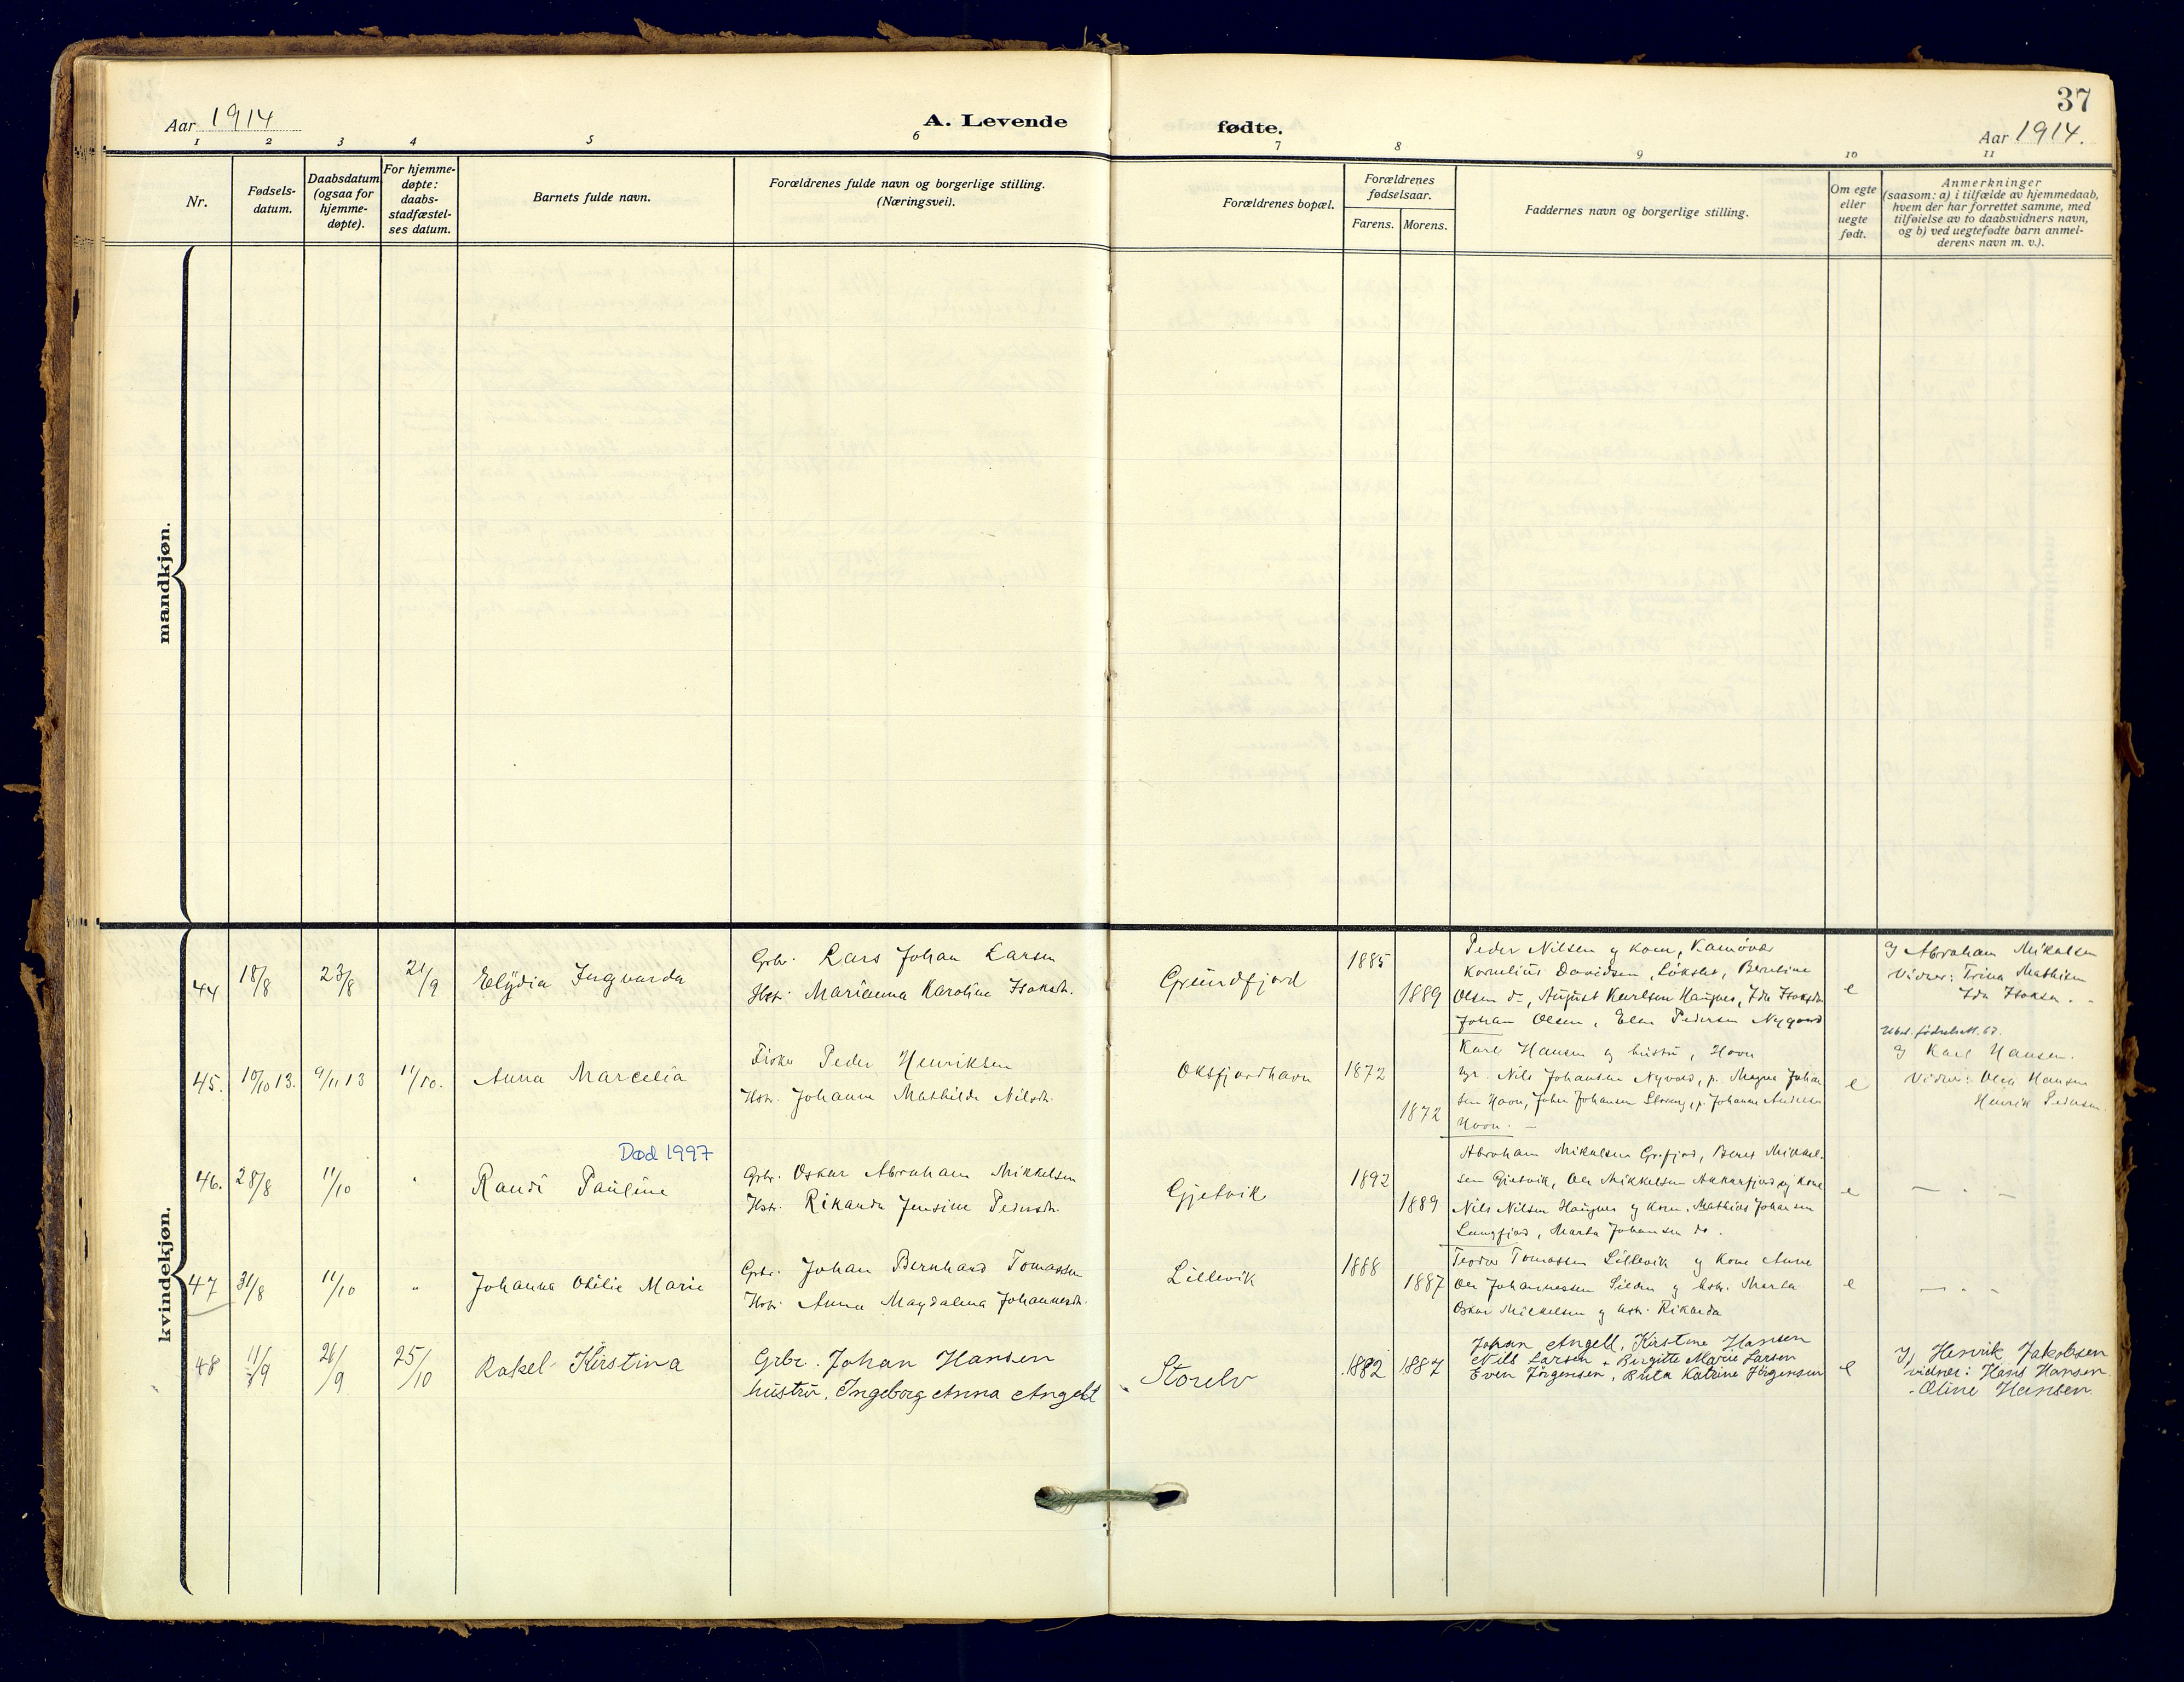 37
Aar 1914
A. Levende
fødte.
Aar 1914.
1 2 3 4 5 6 7 8 9 10 11
Nr.
Fødsels-
datum.
Daabsdatum
(ogsaa for
hjemme-
døpte).
For hjemme-
døpte:
daabs-
stadfæstel-
ses datum.
Barnets fulde navn.
Forældrenes fulde navn og borgerlige stilling.
(Næringsvei).
Forældrenes bopæl.
Forældrenes
fødselsaar.
Farens. Morens.
Faddernes navn og borgerlige stilling.
Om egte
eller
uegte
født.
Anmerkninger
(saasom: a) i tilfælde av hjemmedaab,
hvem der har forrettet samme, med
tilføielse av to daabsvidners navn,
og b) ved uegtefødte barn anmel-
derens navn m. v.).
mandkjøn.
kvindekjøn.
44 18/8 23/8 21/9 Elydia Ingvarda
Grbr. Lars Johan Larsen
Hstr. Marianna Karoline Isaksdr.
Grundfjord
1885
1889
Peder Nilsen og kone, Kamøvær
Kornelius Davidsen, Løkslet, Bereline
Olsen do, August Karlsen Haugnes, Ida Isaksdr
Johan Olsen, Elen Pedersen Nygaard
e
Gj Abraham Mikalsen
Vidner: Trina Mathisen
Ida Isaksen. -
45. 10/10 13. 9/11 13 11/10. Anna Marcelia
Fisker Peder Henriksen
Hstr. Johanna Mathilde Nilsdr.
Oksfjordhavn
1872
1872
Karl Hansen og hustru, Havn
Nils Johansen Nyvold, p. Magna Johan
sen Havn, Johan Johansen, p. Johanne Andersen
Havn. -
e
Utst. fødselsatt. 67.
Gj Karl Hansen.
Vidner: Olea Hansen
Henrik Pedersen.
Død 1997
46. 28/8 11/10 " Randi Pauline
Grbr. Oskar Abraham Mikkelsen
Hstr. Rikarda Jensine Pedersdr.
Gjetvik
1892
1889
Abraham Mikalsen Gr.fjord, Beret Mikkel-
sen Gjetvik, Ole Mikkelsen Aakerfjord og kone
Nils Nilsen Haugnes og kone, Mathias Johansen
Langfjord, Marta Johansen do.
e
— " —
47 31/8 11/10 " Johanna Otilie Marie
Grbr. Johan Bernhard Tomassen
Hstr. Anna Magdalena Johannesdr.
Lillevik
1888
1887
Teodor Tomassen Lillevik og kone Anne
Ole Johannessen Silden og hstr. Marta
Oskar Mikkelsen og hstr. Rikarda
e
— " —
48 11/9 26/9 25/10 Rakel Kirstina
Grbr. Johan Hansen
hustru, Ingeborg Anna Angell
Storelv
1882 1887
Johan Angell, Kirstine Hansen
Nils Larsen + Birgitte Marie Larsen
Even Jørgensen, Berta Katrine Jørgensen
e
Gj Henrik Jakobsen
vidner: Hans Hansen
- Oline Hansen